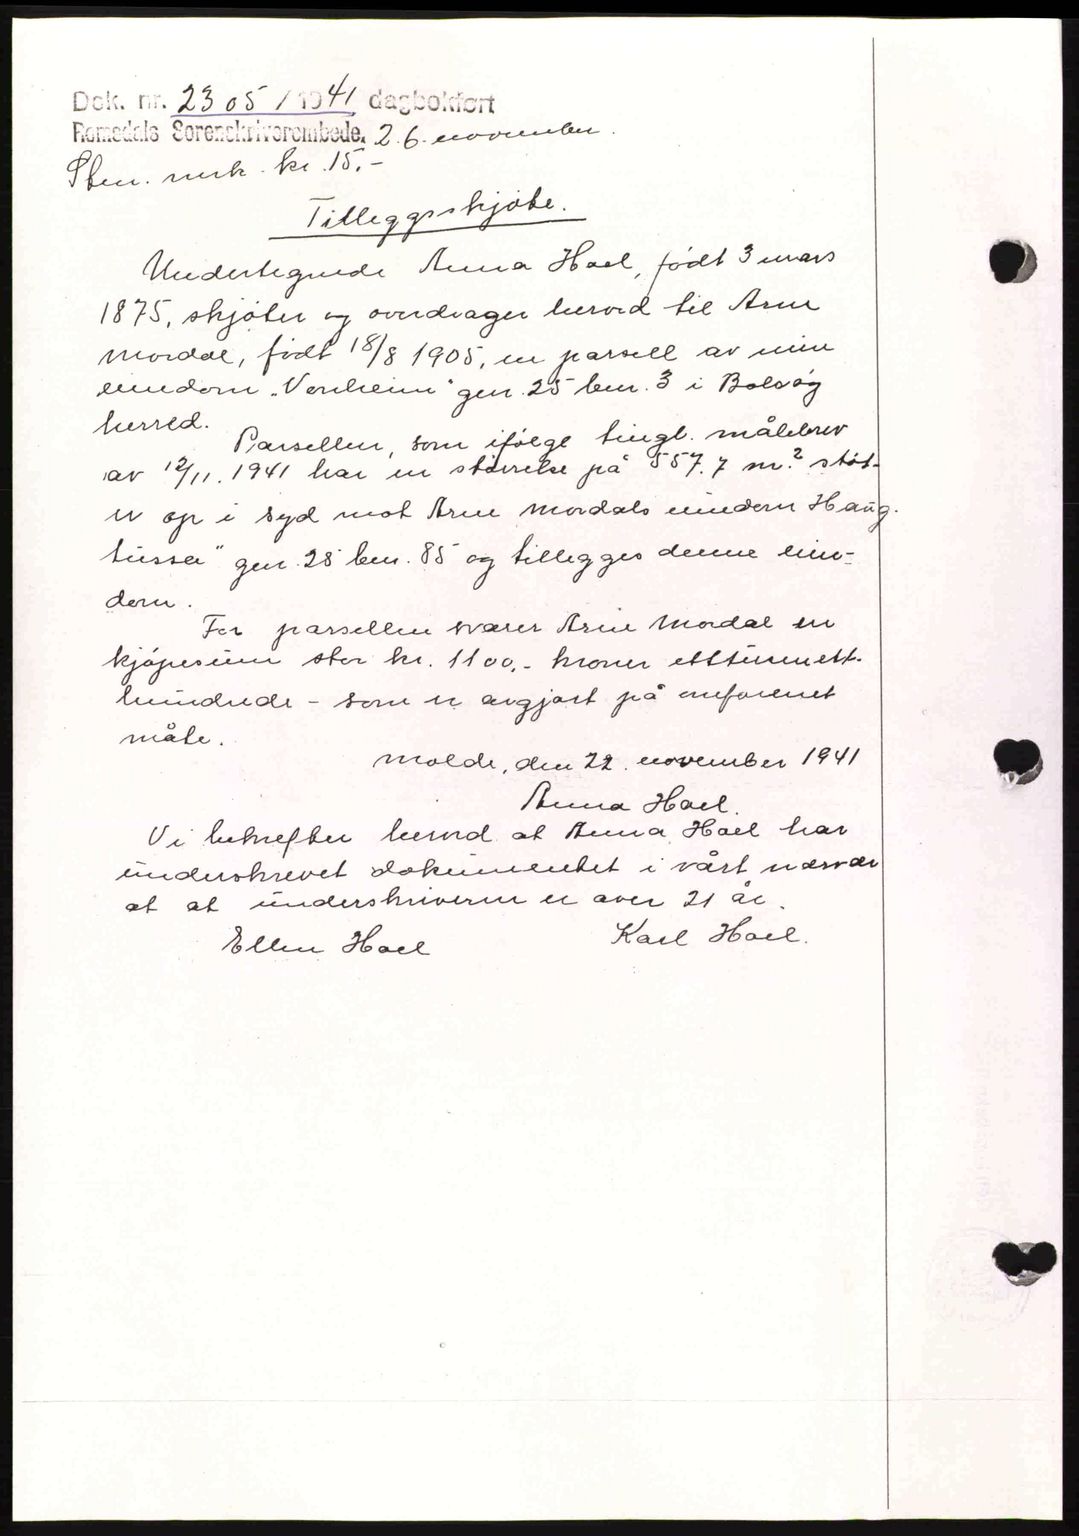 Dok. nr. 2305/1941 dagbokført
Romsdals Sorenskriverembede, 26. november.
Stem. merk. kr. 15.-
Tilleggsskjøte.
Undertegnede Anna Hoel, født 3 mars
1875, skjøter og overdrager herved til Arne
Mordal, født 18/8 1905, en parsell av min
eiendom „Venheim" gnr. 25 bnr. 3 i Bolsøy
herred.
Parsellen, som ifølge tingl. målebrev
av 12/11. 1941 har en størrelse på 557.7 m.² støt-
er op i syd mot Arne Mordals eiendom Haug-
tussa" gnr. 25 bnr. 85 og tillegges denne eien-
dom.
For parsellen svarer Arne Mordal en
kjøpesum stor kr. 1100,- kroner ettusenett-
hundrede - som er avgjort på omforenet
måte.
Molde, den 22. november 1941
Anna Hoel.
Vi bekrefter herved at Anna Hoel har
underskrevet dokumentet i vårt nærvær
at at underskriveren er over 21 år.
Ellen Hoel Karl Hoel.